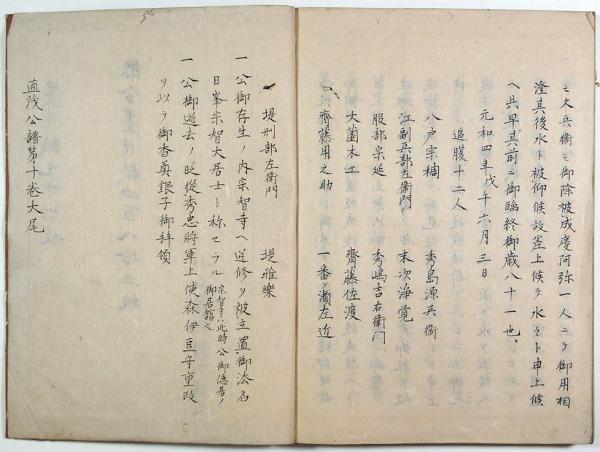 ミ久兵衛モ御除被成慶阿弥一人ニテ御用相
澄其後水ト被仰候故差上候ヲ水々ト申上候
ヘ共早其前ニ御臨終御歳八十一也、
元和四年戊午六月三日
追腹十二人
八戸宗稠　秀島源兵衛
江副兵部左衛門　末次浄覚
服部宗延　秀嶋吉右衛門
大薗木工　齊藤佐渡
齊藤用之助　一番ヶ瀬左近
堤刑部左衛門　堤雅樂
一公御存生ノ内宗智寺ヘ逆修ヲ被立置御法名
日峯宗智大居士ト称セラル 宗智寺ハ此時公御隠居ノ
御居館也
一公御逝去ノ砌従秀忠将軍上使森伊豆守重政
ヲ以テ御香奠銀子御拝領
直茂公譜第十巻大尾